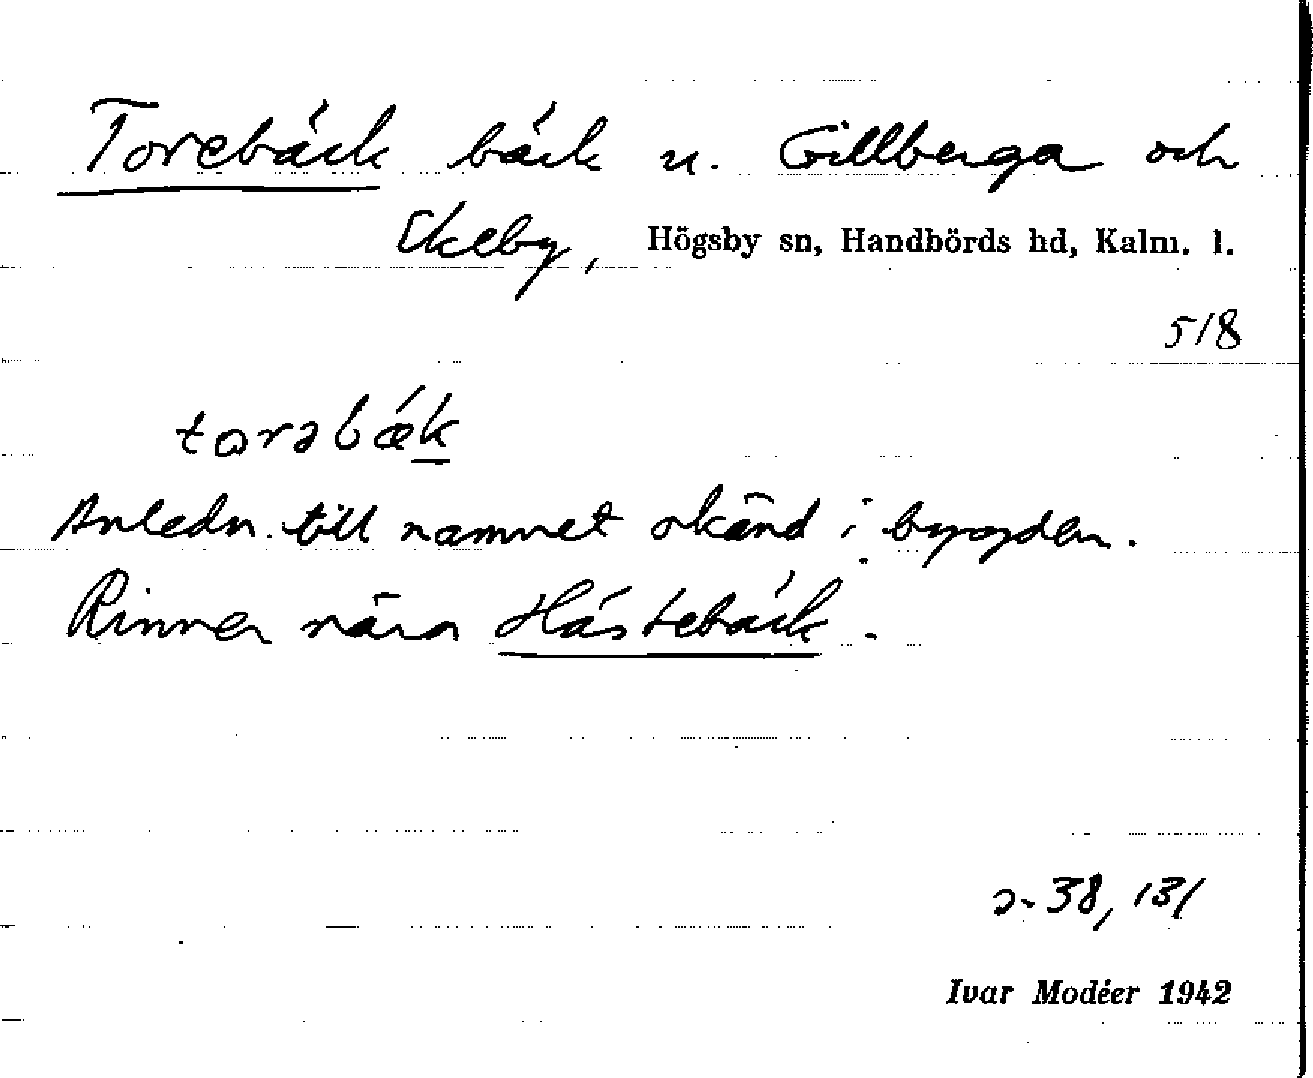 Torebäck bäck u. Gillberga och
Ekeby, Högsby sn, Handbörds hd, Kalm. l.
5/8
torəbæk
Anledn. till namnet okänd i bygden.
Rinner nära Hästebäck.
38, 131
Ivar Modéer 1942